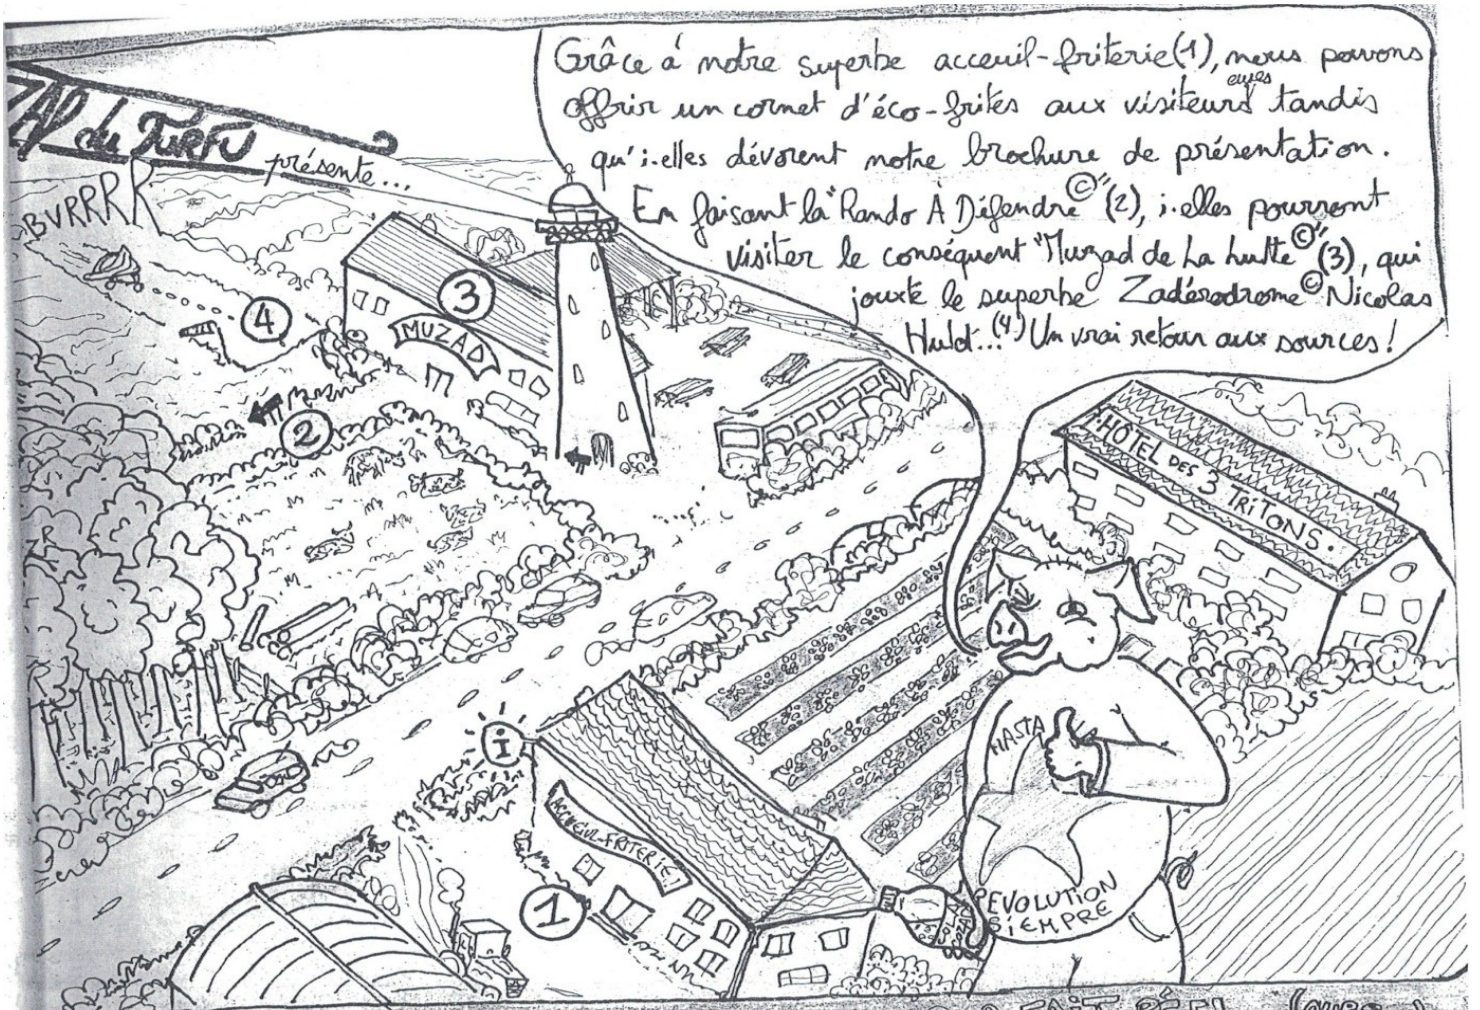 ZAD du TURFU
présente...
Grâce à notre superbe acceuil-friterie (1), nous pouvons
offrir un cornet d'éco-frites aux visiteurs/euses tandis
qu'i-elles dévorent notre brochure de présentation.
En faisant la "Rando À Défendre©" (2), i-elles pourront
visiter le conséquent "Muzad de La hulte©" (3), qui
jouxte le superbe Zadérodrome© Nicolas
Hulot...(4) Un vrai retour aux sources!
BVRRRR
4
3
MUZAD
2
HÔTEL DES 3 TRITONS.
i
ACCUEUIL-FRITERIE
1
HASTA
REVOLUTION
SIEMPRE
FAIT RÉEL